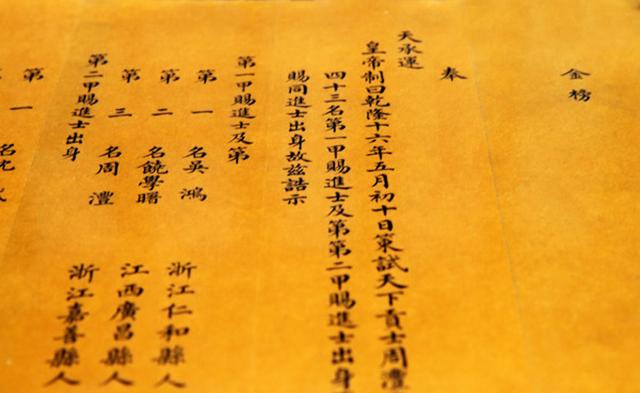 金榜
奉
天承運
皇帝制曰乾隆十六年五月初十日策試天下貢士周澧
四十三名第一甲賜進士及第第二甲賜進士出身
賜同進士出身故茲誥示
第一甲賜進士及第
第一名吳鴻 浙江仁和縣人
第二名饒學曙 江西廣昌縣人
第三名周澧 浙江嘉善縣人
第二甲賜進士出身
第一名沈
第